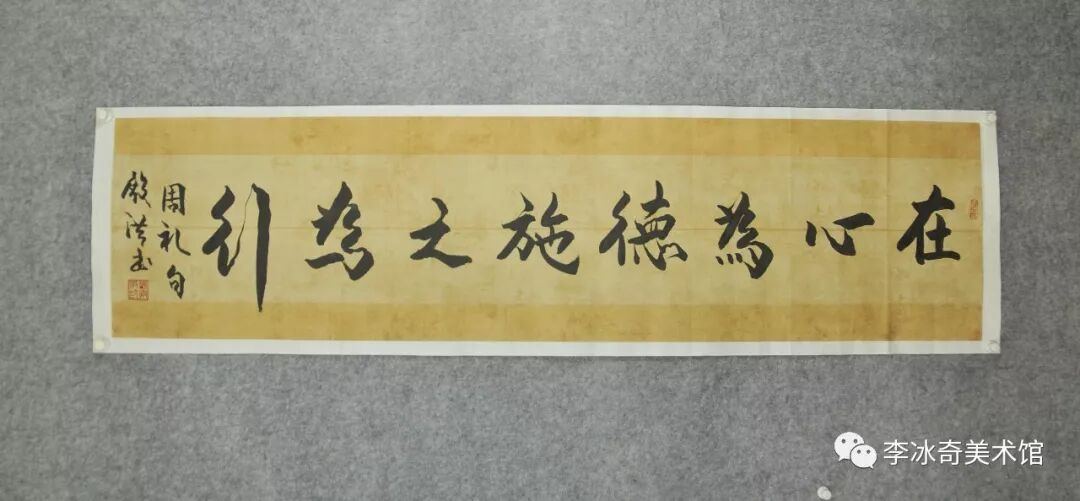 在心為德施之為行
周礼句
殷洪书
李冰奇美术馆